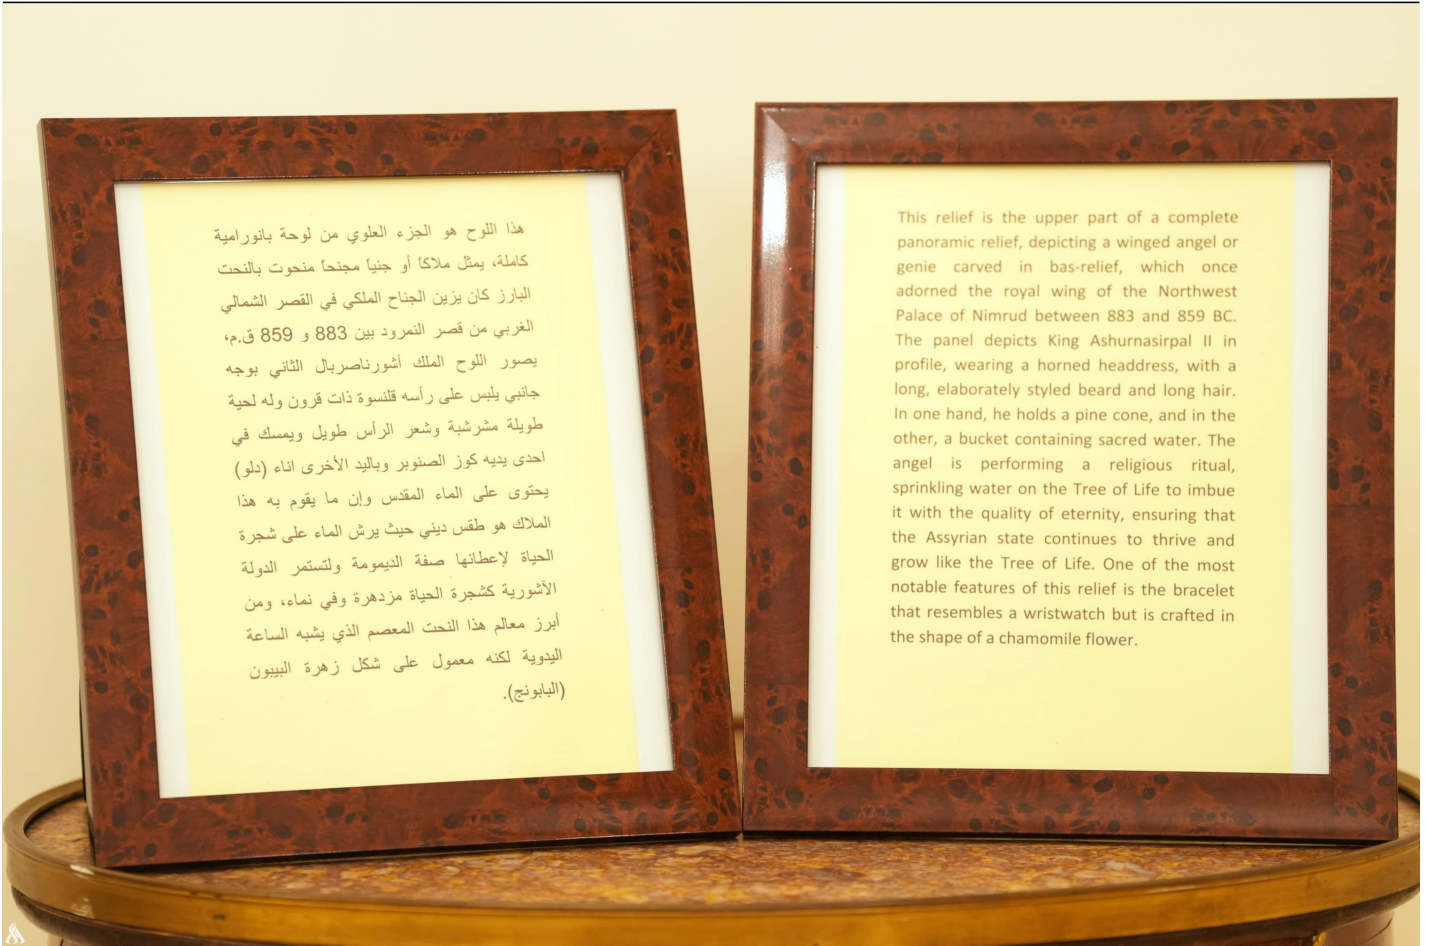 هذا اللوح هو الجزء العلوي من لوحة بانورامية
كاملة، يمثل ملاكاً أو جنياً مجنحاً منحوت بالنحت
البارز كان يزين الجناح الملكي في القصر الشمالي
الغربي من قصر النمرود بين 883 و 859 ق.م،
يصور اللوح الملك آشورناصربال الثاني بوجه
جانبي يلبس على رأسه قلنسوة ذات قرون وله لحية
طويلة مشرشبة وشعر الرأس طويل ويمسك في
احدى يديه كوز الصنوبر وباليد الأخرى اناء (دلو)
يحتوى على الماء المقدس وإن ما يقوم به هذا
الملاك هو طقس ديني حيث يرش الماء على شجرة
الحياة لإعطانها صفة الديمومة ولتستمر الدولة
الآشورية كشجرة الحياة مزدهرة وفي نماء، ومن
أبرز معالم هذا النحت المعصم الذي يشبه الساعة
اليدوية لكنه معمول على شكل زهرة البيبون
(البابونج).
This relief is the upper part of a complete
panoramic relief, depicting a winged angel or
genie carved in bas-relief, which once
adorned the royal wing of the Northwest
Palace of Nimrud between 883 and 859 BC.
The panel depicts King Ashurnasirpal II in
profile, wearing a horned headdress, with a
long, elaborately styled beard and long hair.
In one hand, he holds a pine cone, and in the
other, a bucket containing sacred water. The
angel is performing a religious ritual,
sprinkling water on the Tree of Life to imbue
it with the quality of eternity, ensuring that
the Assyrian state continues to thrive and
grow like the Tree of Life. One of the most
notable features of this relief is the bracelet
that resembles a wristwatch but is crafted in
the shape of a chamomile flower.